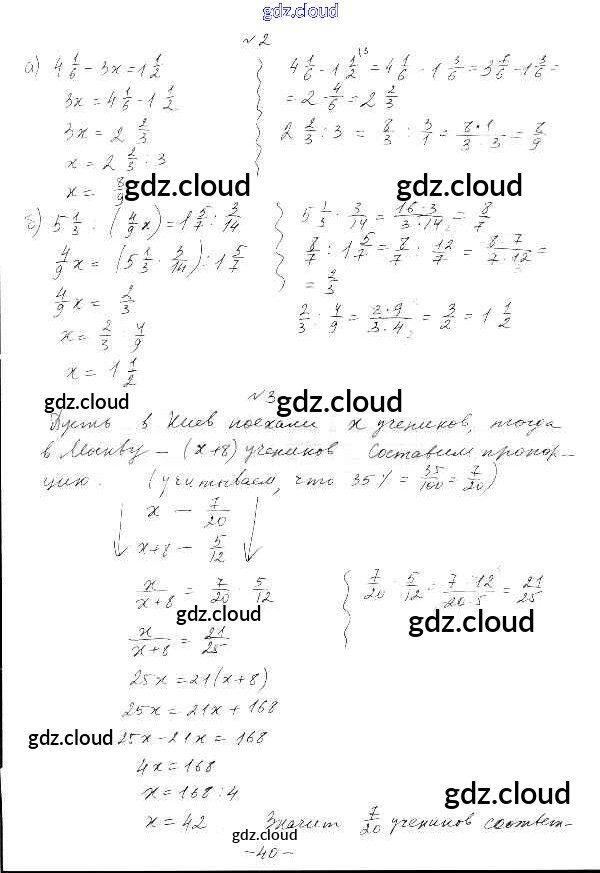 gdz.cloud
№2
а) 4 1/6 - 3x = 1 1/2
3x = 4 1/6 - 1 1/2
3x = 2 2/3
x = 2 2/3 : 3
x = 8/9
4 1/6 - 1 1/2 = 4 1/6 - 1 3/6 = 3 7/6 - 1 3/6 =
= 2 4/6 = 2 2/3
2 2/3 : 3 = 8/3 : 3/1 = 8·1/3·3 = 8/9
gdz.cloud
gdz.cloud
б) 5 1/3 : (4/9 x) = 1 5/7 : 3/14
4/9 x = (5 1/3 · 3/14) : 1 5/7
4/9 x = 2/3
x = 2/3 : 4/9
x = 1 1/2
5 1/3 · 3/14 = 16·3/3·14 = 8/7
8/7 : 1 5/7 = 8/7 : 12/7 = 8·7/7·12 =
= 2/3
2/3 : 4/9 = 2·9/3·4 = 3/2 = 1 1/2
gdz.cloud
№3
gdz.cloud
Пусть в Киев поехали x учеников, тогда
в Москву - (x+8) учеников. Составим пропор-
цию. (учитываем, что 35% = 35/100 = 7/20)
x - 7/20
x+8 - 5/12
x/x+8 = 7/20 : 5/12
7/20 : 5/12 = 7·12/20·5 = 21/25
gdz.cloud
gdz.cloud
x/x+8 = 21/25
25x = 21(x+8)
25x = 21x + 168
gdz.cloud
25x - 21x = 168
4x = 168
x = 168 : 4
gdz.cloud
x = 42 Значит 7/20 учеников соответ-
gdz.cloud
-40-